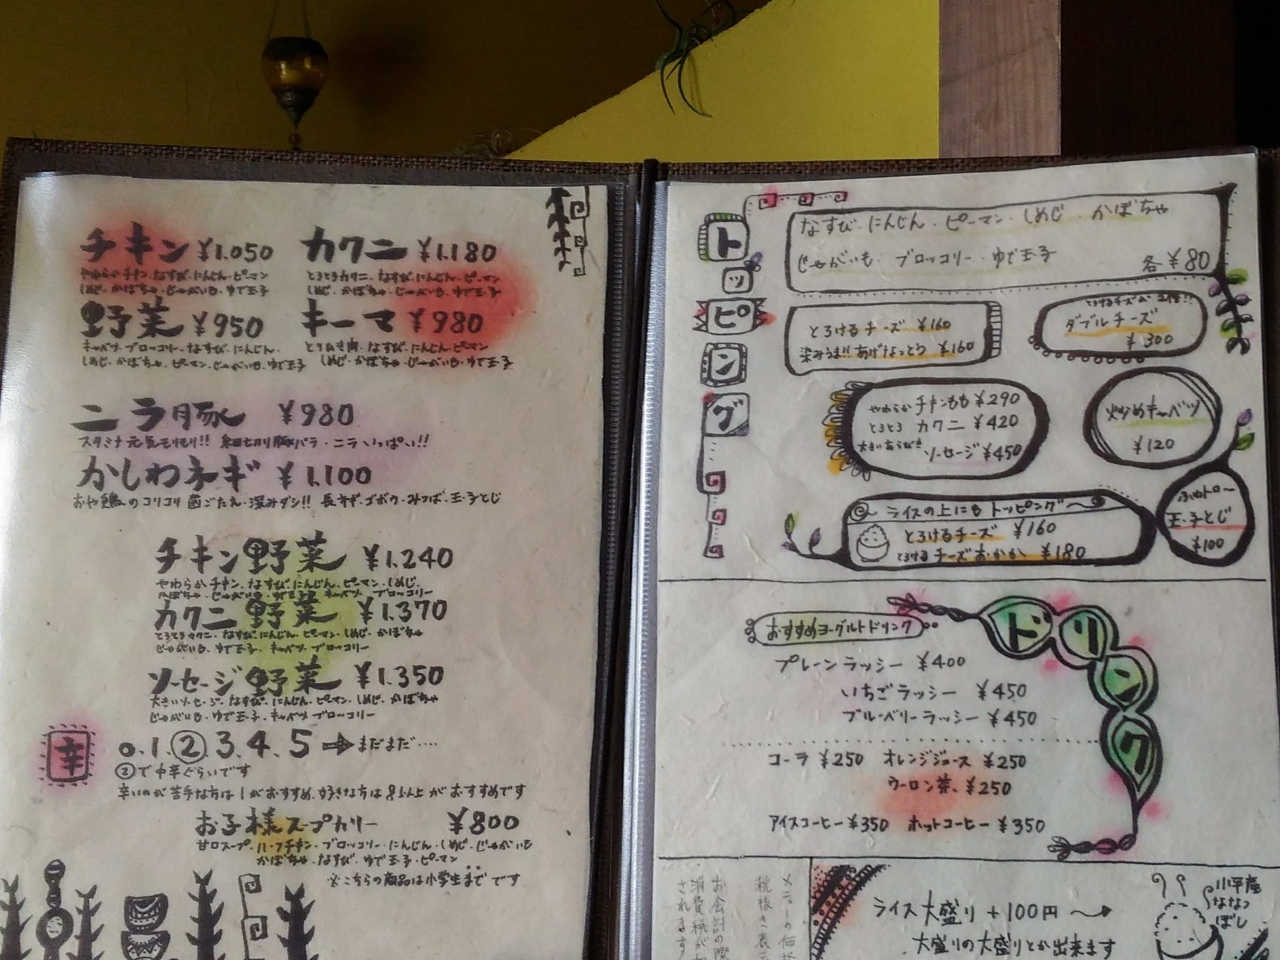 チキン ¥1.050
やわらかチキン.なすび.にんじん.ピーマン
しめじ.かぼちゃ.じゃがいも.ゆで玉子
カクニ ¥1.180
とろとろカクニ.なすび.にんじん.ピーマン
しめじ.かぼちゃ.じゃがいも.ゆで玉子
野菜 ¥950
キャベツ.ブロッコリー.なすび.にんじん.
しめじ.かぼちゃ.ピーマン.じゃがいも.ゆで玉子
キーマ ¥980
とりひき肉.なすび.にんじん.ピーマン
しめじ.かぼちゃ.じゃがいも.ゆで玉子
ニラ豚 ¥980
スタミナ元気モリモリ!! 細切り豚バラ・ニラいっぱい!!
かしわネギ ¥1,100
おや鶏のコリコリ歯ごたえ.深みダシ!! 長ネギ.ゴボウ.みつば.玉子とじ
チキン野菜 ¥1.240
やわらかチキン.なすび.にんじん.ピーマン.しめじ.
かぼちゃ.じゃがいも.ゆで玉子.キャベツ.ブロッコリー
カクニ野菜 ¥1.370
とろとろカクニ.なすび.にんじん.ピーマン.しめじ.かぼちゃ
じゃがいも.ゆで玉子.キャベツ.ブロッコリー
ソーセージ野菜 ¥1.350
大きいソーセージ.なすび.にんじん.ピーマン.しめじ.かぼちゃ
じゃがいも.ゆで玉子.キャベツ.ブロッコリー
辛 0.1.②3.4.5 ⇒まだまだ‥‥
②で中辛ぐらいです
辛いのが苦手な方は1がおすすめ.好きな方は8以上がおすすめです
お子様スープカリー ¥800
甘口スープ.ハーフチキン.ブロッコリー.にんじん.しめじ.じゃがいも
かぼちゃ.なすび.ゆで玉子.ピーマン
※こちらの商品は小学生までです
トッピング
なすび.にんじん.ピーマン.しめじ.かぼちゃ
じゃがいも.ブロッコリー.ゆで玉子 各¥80
とろけるチーズ ¥160
染みうま!!あげなっとう ¥160
とろけるチーズが2倍!!
ダブルチーズ
¥300
やわらかチキンもも ¥290
とろとろ カクニ ¥420
大きいあらびき ソーセージ ¥450
炒めキャベツ
¥120
ライスの上にもトッピング
とろけるチーズ ¥160
とろけるチーズおかか ¥180
ふわトロ〜
玉子とじ
¥100
ドリンク
おすすめヨーグルトドリンク
プレーンラッシー ¥400
いちごラッシー ¥450
ブルーベリーラッシー ¥450
コーラ ¥250 オレンジジュース ¥250
ウーロン茶 ¥250
アイスコーヒー ¥350 ホットコーヒー ¥350
メニューの価格
税抜き表示
お会計の際
消費税が加
されます
ライス大盛り+100円
大盛りの大盛りとか出来ます
小平産
ななつ
ぼし